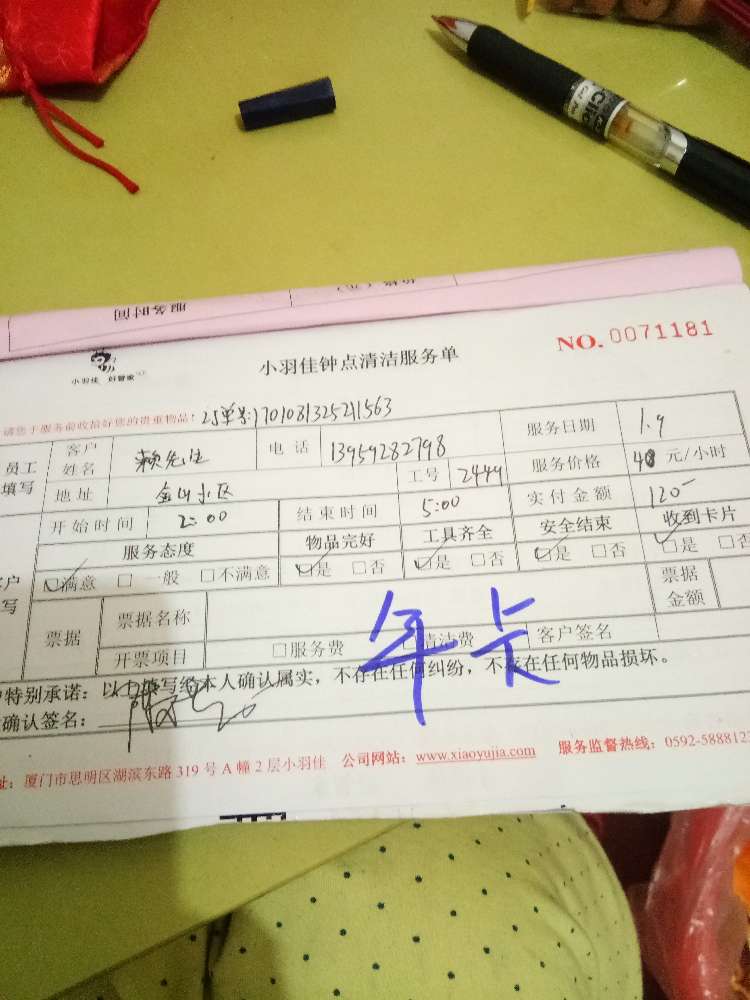 服务时间
小羽佳 好管家
小羽佳钟点清洁服务单
NO. 0071181
请您于服务前收拾好您的贵重物品:订单号:1701081325241563
员工填写 客户姓名 赖先生 电话 13959282798 服务日期 1.9
地址 金山小区 工号 2449 服务价格 40 元/小时
开始时间 2:00 结束时间 5:00 实付金额 120-
服务态度 物品完好 工具齐全 安全结束 收到卡片
☑满意 □ 一般 □不满意 ☑是 □否 ☑是 □否 ☑是 □否 ☑是 □否
票据 票据名称 票据金额
开票项目 □服务费 清洁费 客户签名
年卡
特别承诺:以上填写经本人确认属实,不存在任何纠纷,不存在任何物品损坏。
确认签名:
址:厦门市思明区湖滨东路 319 号 A 幢 2 层小羽佳 公司网站:www.xiaoyujia.com 服务监督热线:0592-5888123